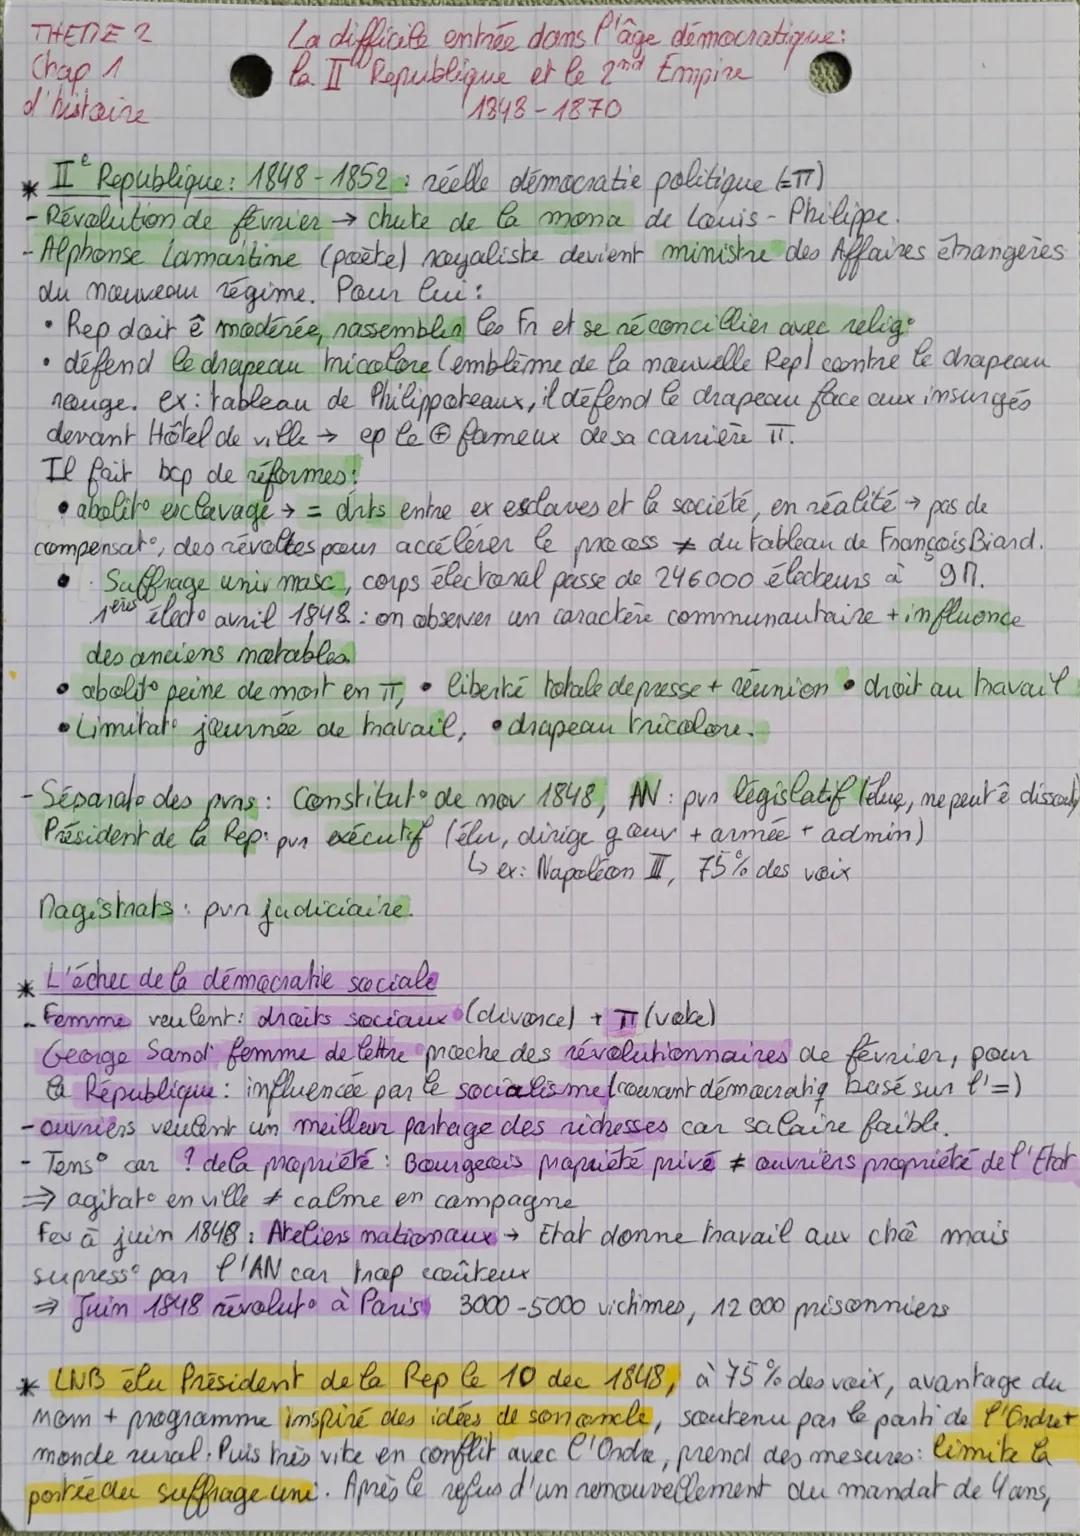 THEME 2
Chap 1
d'histoire
La difficile entrée dans l'âge démocratique:
la IIe Republique et le 2nd Empire
1848-1870
* IIe Republique: 1848-1852: réelle démocratie politique (=π)
- Révolution de février → chute de la mona de Louis-Philippe.
- Alphonse Lamartine (poète) royaliste devient ministre des Affaires étrangères
du nouveau régime. Pour lui:
• Rep doit ê modérée, rassembler les Fr et se réconcillier avec relig°
• défend le drapeau tricolore (emblème de la nouvelle Rep) contre le drapeau
rouge. ex: tableau de Philippoteaux, il défend le drapeau face aux insurgés
devant Hôtel de ville → ep le ⊕ fameux de sa carrière π.
Il fait bcp de réformes:
• abolit° esclavage → = drts entre ex esclaves et la société, en réalité → pas de
compensat°, des révoltes pour accélérer le process ≠ du tableau de François Biard.
• Suffrage univ masc, corps électoral passe de 246000 électeurs à 9M.
1ères élect° avril 1848: on observer un caractère communautaire + influence
des anciens notables
• abolit° peine de mort en π, • liberté totale de presse + réunion • droit au travail
• Limitat° journée de travail, • drapeau tricolore.
- Séparat° des pvrs: Constitut° de nov 1848, AN: pvr législatif (élue, ne peut ê dissout)
Président de la Rep: pvr exécutif (élu, dirige gouv + armée + admin)
↳ ex: Napoléon III, 75% des voix
Magistrats: pvr judiciaire.
* L'échec de la démocratie sociale
- Femme veulent: droits sociaux (divorce) + π (vote)
George Sand femme de lettre proche des révolutionnaires de février, pour
la République: influencée par le socialisme (courant démocratiq basé sur l'=)
- ouvriers veulent un meilleur partage des richesses car salaire faible.
- Tens° car ? de la propriété: Bourgeois propriété privé ≠ ouvriers propriété de l'Etat
⇒ agitat° en ville ≠ calme en campagne
Fev à juin 1848: Ateliers nationaux → Etat donne travail aux chô mais
supress° par l'AN car trop coûteux
⇒ Juin 1848 révolut° à Paris 3000-5000 victimes, 12 000 prisonniers
* LNB élu Président de la Rep le 10 dec 1848, à 75% des voix, avantage du
nom + programme inspiré des idées de son oncle, soutenu par le parti de l'Ordre +
monde rural. Puis très vite en conflit avec l'Ordre, prend des mesures: limite la
portée du suffrage uni. Après le refus d'un renouvellement du mandat de 4 ans,